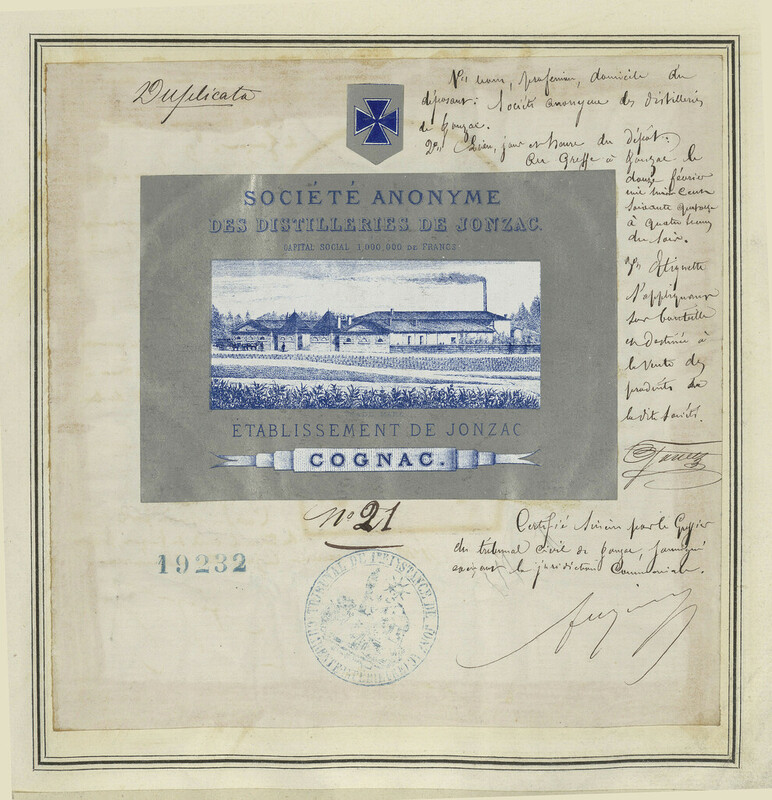 Duplicata
1° nom, profession, domicile du
déposant: Société anonyme des distilleries
de Jonzac.
2° Lieu, jour et heure du dépôt:
Au Greffe à Jonzac le
douze février
mil huit cent
soixante quatorze
à quatre heures
du soir.
3° Etiquette
s'appliquant
sur bouteille
et destinée à
la vente des
produits de
la dite Société.
SOCIÉTÉ ANONYME
DES DISTILLERIES DE JONZAC.
CAPITAL SOCIAL 1,000,000 DE FRANCS
ÉTABLISSEMENT DE JONZAC
COGNAC.
N° 21
19232
Certifié Sincère par le Greffier
du tribunal Civil de Jonzac,
exerçant la juridiction Commerciale.
TRIBUNAL DE 1RE INSTANCE DE JONZAC